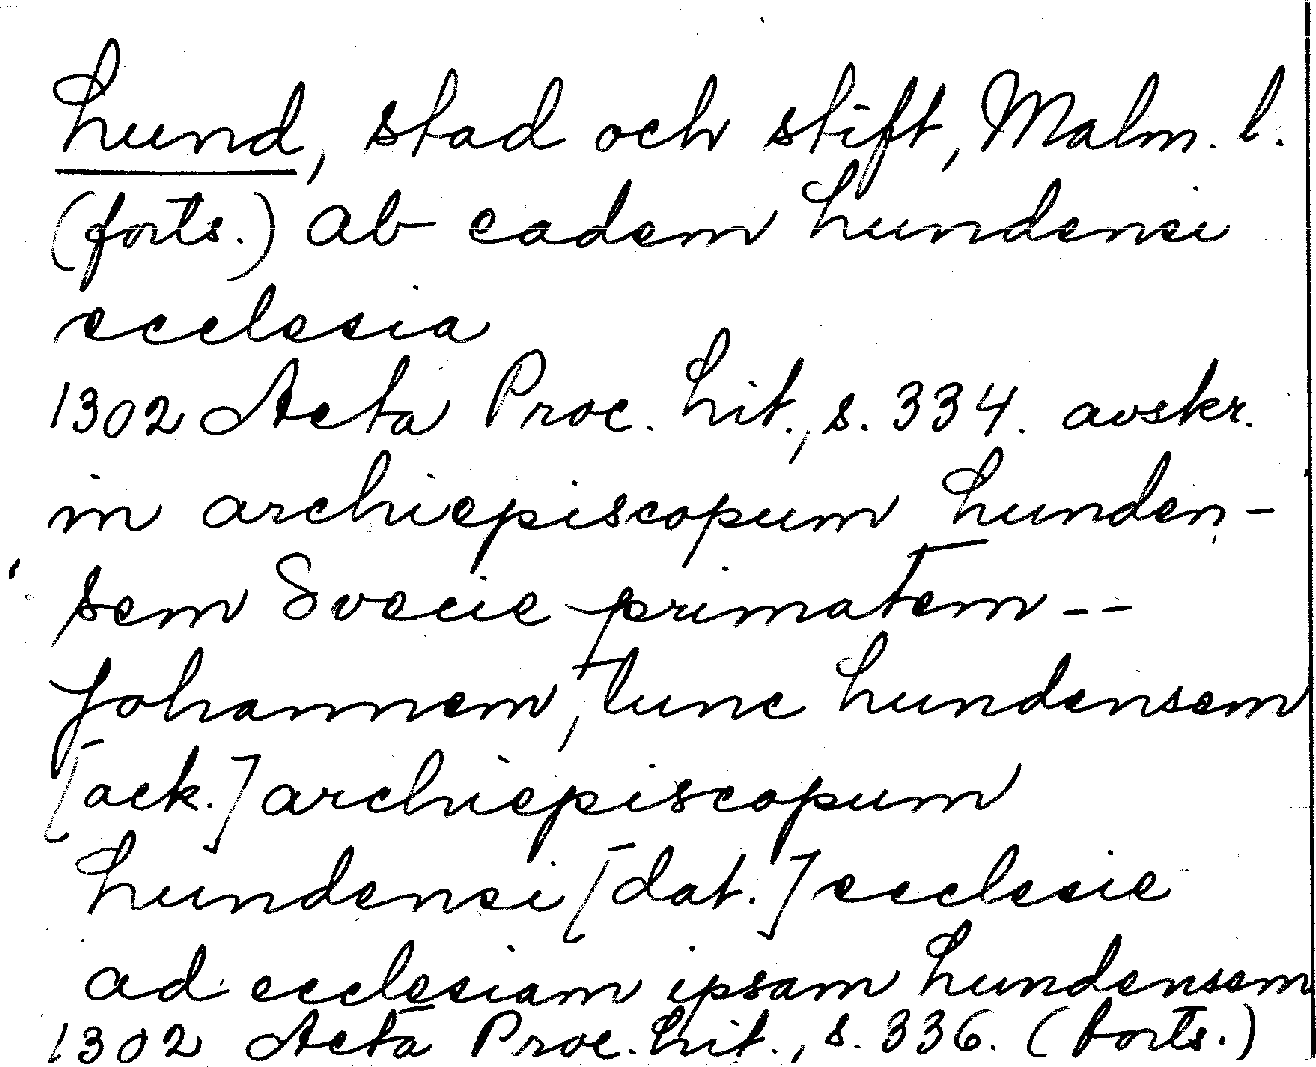 Lund, stad och stift, Malm. l.
(forts.) ab eadem Lundensi
ecclesia
1302 Acta Proc. Lit., s. 334. avskr.
in archiepiscopum Lunden-
sem Svecie primatem --
Johannem, tunc Lundensem
[ack.] archiepiscopum
Lundensi [dat.] ecclesie
ad ecclesiam ipsam Lundensem
1302 Acta Proc. Lit., s. 336. (forts.)